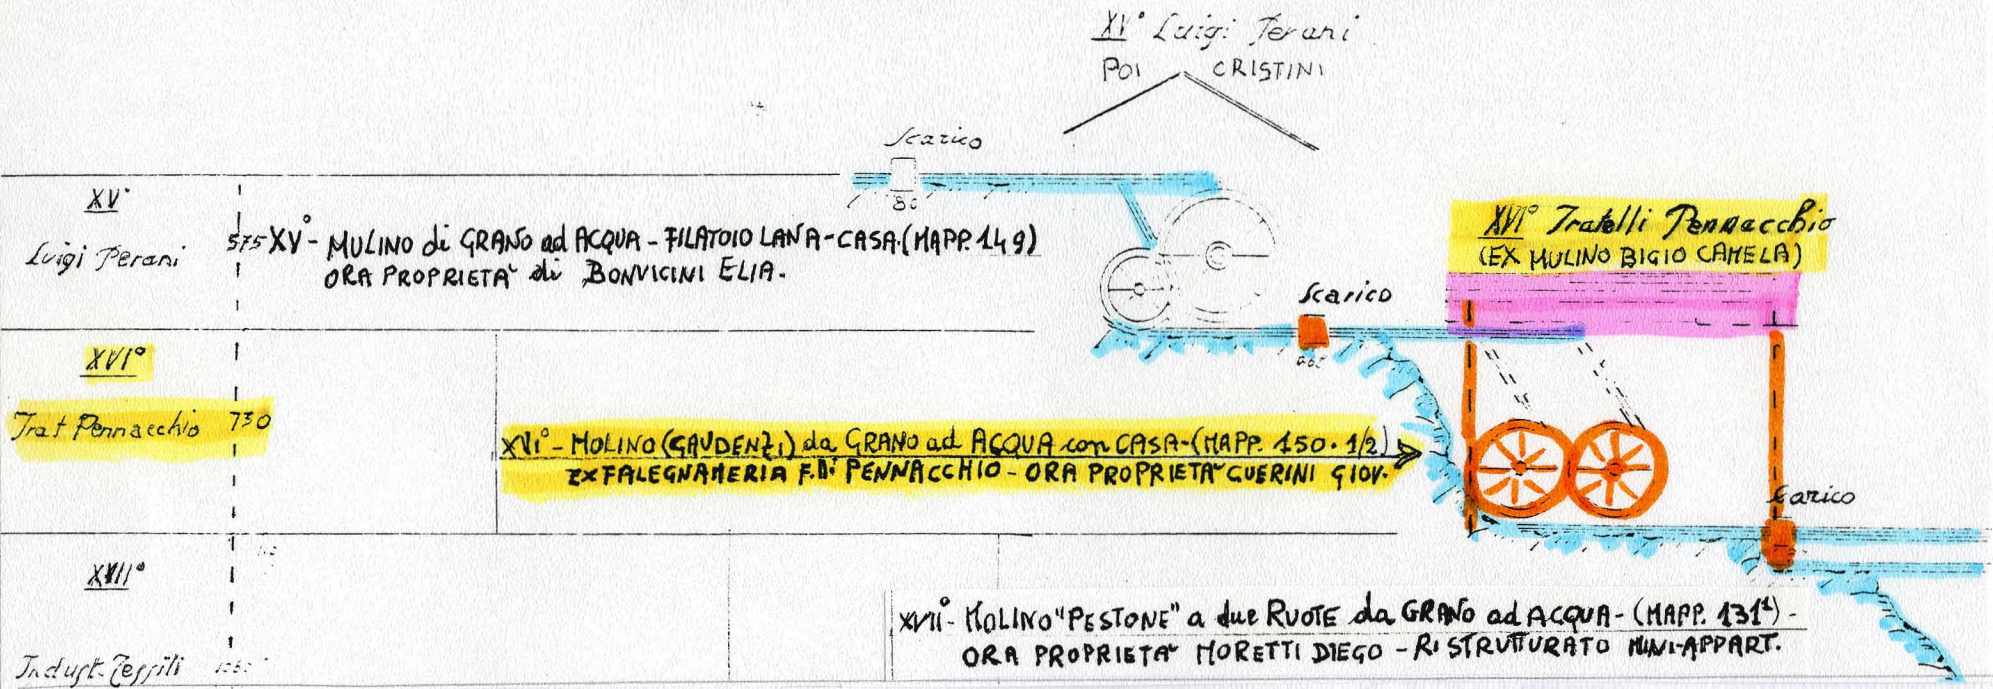 XV° Luigi Perani
POI CRISTINI
Scarico
80
XV°
Luigi Perani
575
XV° - MULINO di GRANO ad ACQUA - FILATOIO LANA - CASA. (MAPP. 149)
ORA PROPRIETA' di BONVICINI ELIA.
XVI° Fratelli Pennacchio
(EX MULINO BIGIO CAMELA)
Scarico
XVI°
Frat Pennacchio 730
XVI° - MOLINO (GAUDENZI) da GRANO ad ACQUA con CASA - (MAPP. 150. 1/2)
EX FALEGNAMERIA F.lli PENNACCHIO - ORA PROPRIETA' GUERINI GIOV.
Scarico
XVII°
Indust. Tessili
XVII° - MOLINO "PESTONE" a due RUOTE da GRANO ad ACQUA - (MAPP. 131¹) -
ORA PROPRIETA' MORETTI DIEGO - RISTRUTTURATO MINI-APPART.